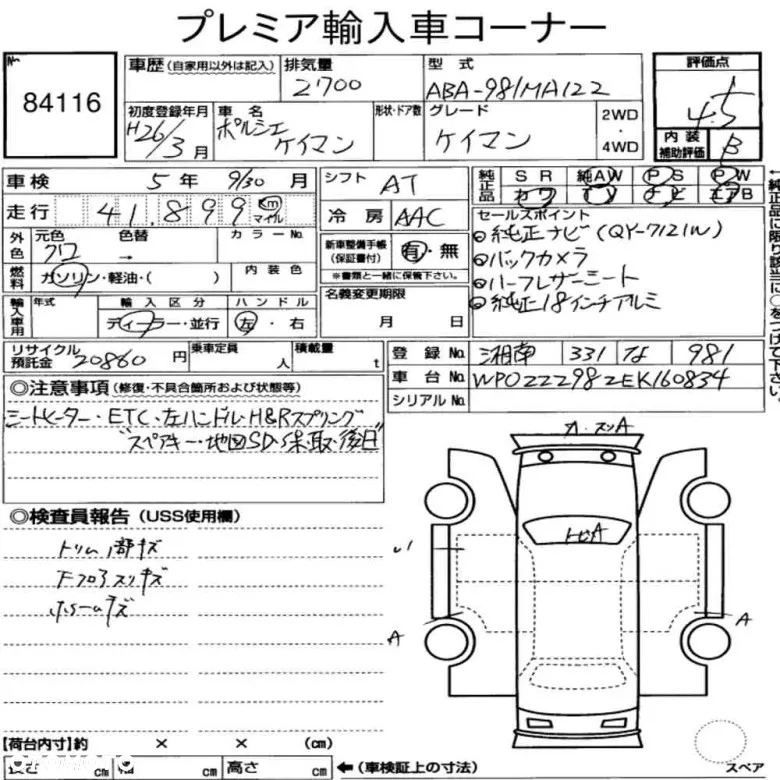 プレミア輸入車コーナー
No. 84116
車歴 (自家用以外は記入) 排気量 2700 型式 ABA-981MA122 評価点 4.5
初度登録年月 H26/3月 車名 ポルシェ ケイマン 形状・ドア数 グレード ケイマン 2WD・4WD 内装補助評価 B
車検 5年 9/30月 シフト AT 純正品 SR 純AW PS PW
走行 41,899 Km マイル 冷房 AAC カワ TV ナビ エアB
外色 元色 クロ 色替 → カラーNo. 新車整備手帳(保証書付) 有・無 ※書類と一緒に保管下さい。
燃料 ガソリン・軽油・( ) 内装色
輸入車用 年式 輸入区分 ディーラー・並行 ハンドル 左・右 名義変更期限 月 日
セールスポイント
純正ナビ(QY-7121W)
バックカメラ
ハーフレザーシート
純正18インチアルミ
←純正品に限り該当に○をつけて下さい。
リサイクル預託金 20860円 乗車定員 人 積載量 t 登録No. 湘南 331 な 981
車台No. WP0ZZZ98ZEK160834
シリアルNo.
◎注意事項 (修復・不具合箇所および状態等)
シートヒーター・ETC・左ハンドル・H&Rスプリング
スペアキー・地図SD・保取・後日
◎検査員報告 (USS使用欄)
トリム1部キズ
Fフロアスリキズ
ホイールキズ
オ・スリA
トビA
A
A
【荷台内寸】約 × × (cm)
長さ cm 幅 cm 高さ cm ←(車検証上の寸法)
スペア